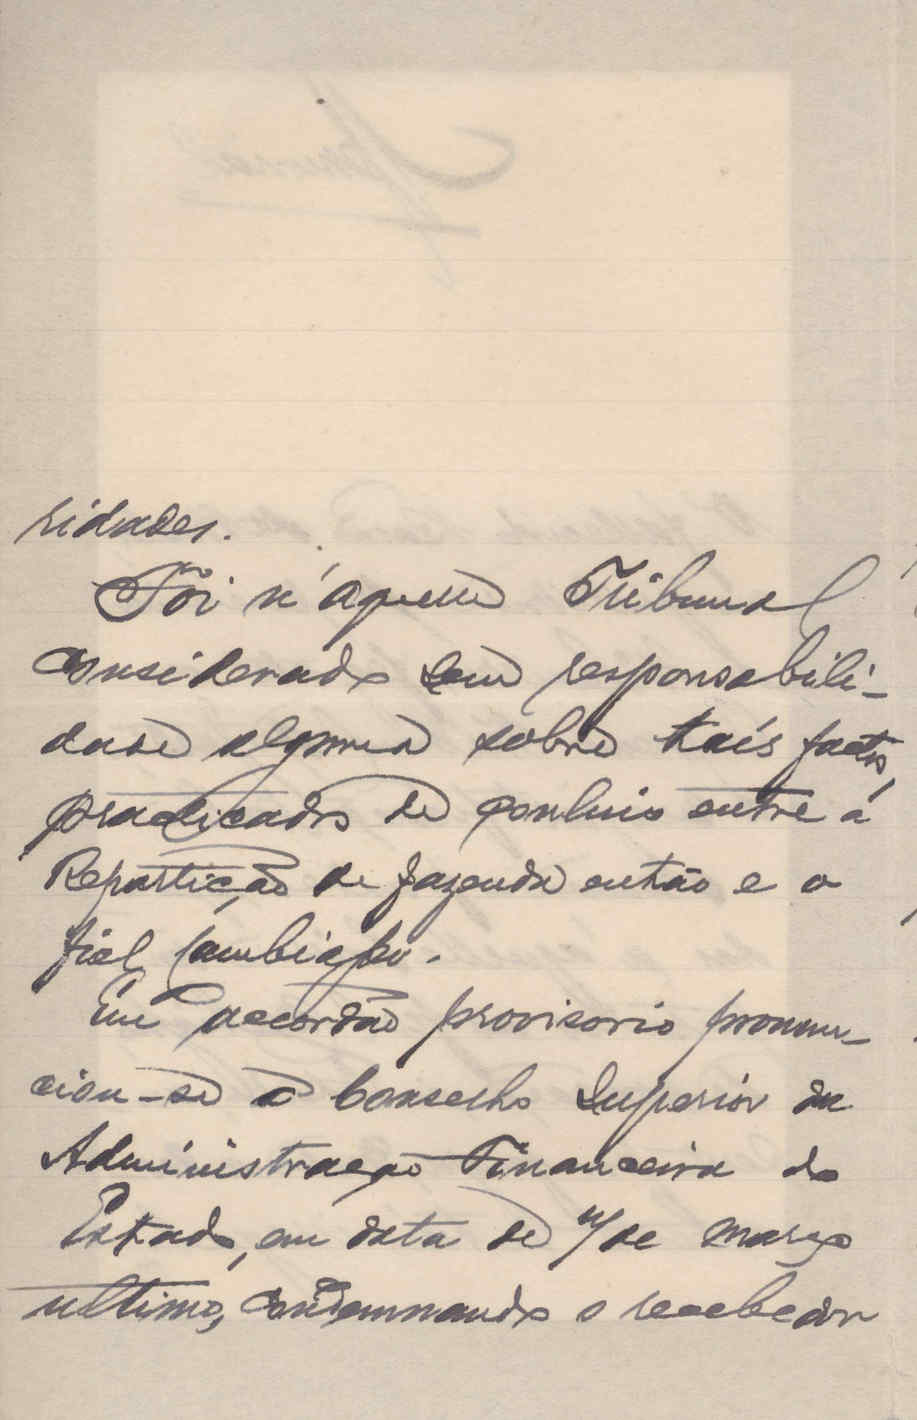 ridades.
Foi n'aquelle Tribunal
considerado sem responsabili-
dade alguma sobre taes factos,
practicados de conluio entre a
Repartição de fazenda então e o
fiel
Em accordão provisorio pronun-
ciou-se o Conselho Superior da
Administração Financeira do
Estado, em data de de março
ultimo, condemnando o recebedor